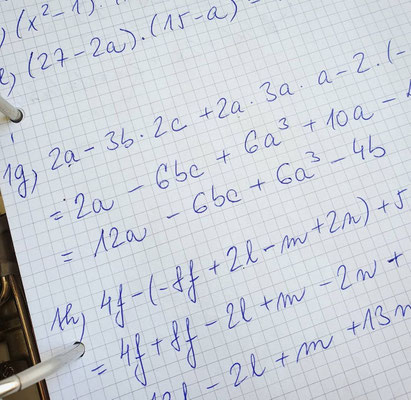 ) (x²-1).
e) (27-2a).(15-a)
1g) 2a-3b.2c+2a.3a.a-2.(-
=2a - 6bc + 6a³ + 10a -
= 12a - 6bc + 6a³ - 4b
1h) 4f-(-8f+2l-m+2n)+5
= 4f+8f-2l+m-2n+
- 2l + m + 13n